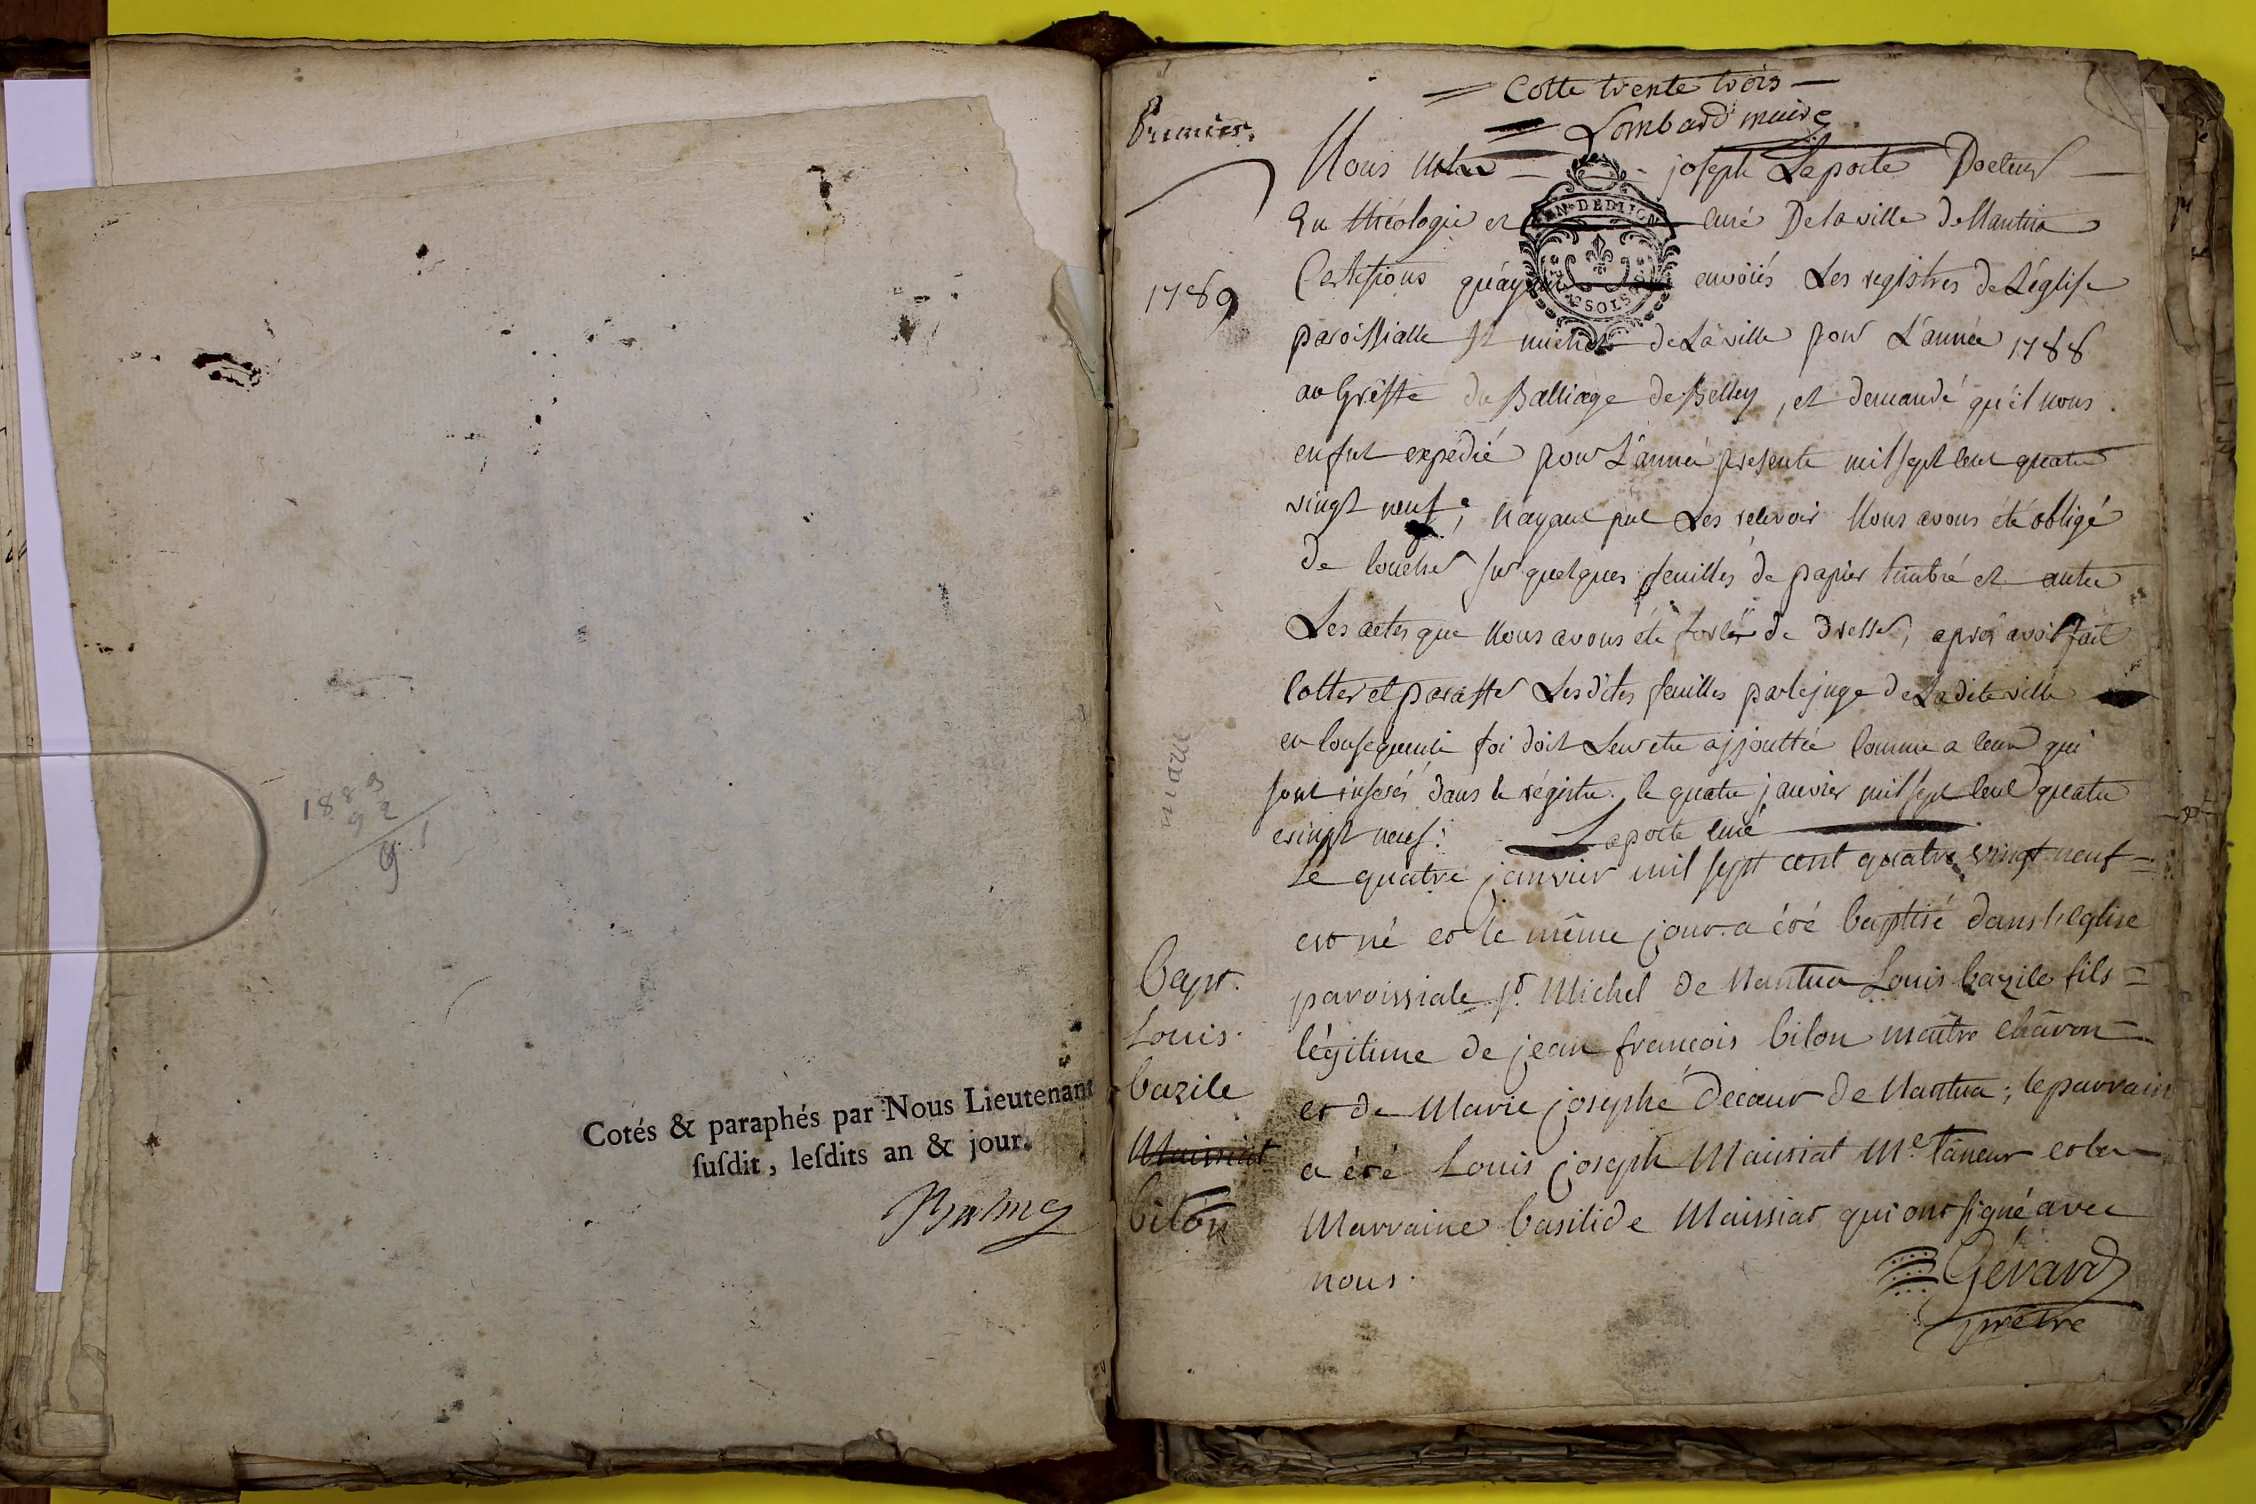 1889
92
91
Cotés & paraphés par Nous Lieutenant
ſuſdit, leſdits an & jour.
Cotte trente trois
Lombard maire
Premier.
Nous joseph Laporte Docteur
En théologie et curé De la ville de Nantua
Certifions qu'ayant envoiés Les registres de L'église
paroissialle St michel de La ville pour L'année 1788
au Greffe du Balliage de Belley, et demandé qu'il nous
en fut expédié pour L'année presente mil sept cent quatre
vingt neuf; n'ayant put Les recevoir Nous avons été obligé
de coucher sur quelques feuilles de papier timbré et autre
Les actes que Nous avons été forcé de Dresser, après avoir fait
cotter et paraffer Lesdites feuilles par le juge de Ladite ville
en consequence foi doit Leur etre ajjouttée comme a ceux qui
sont inserés dans le régistre. le quatre janvier mil sept cent quatre
vingt neuf. Laporte curé
1789
mairie
Le quatre janvier mil sept cent quatre vingt neuf =
est né et le même jour a été baptisé dans l'eglise
paroissiale St. Michel de Nantua Louis bazile fils =
légitime de jean francois bilon maître châron
et de Marie josephe Decour de Nantua; le parrain
a été Louis joseph Maissiat Me. taneur et la
Marraine basilide Maissiat qui ont signé avec
nous.
Gérard
prêtre
bapt.
Louis.
bazile
Maissiat
bilon